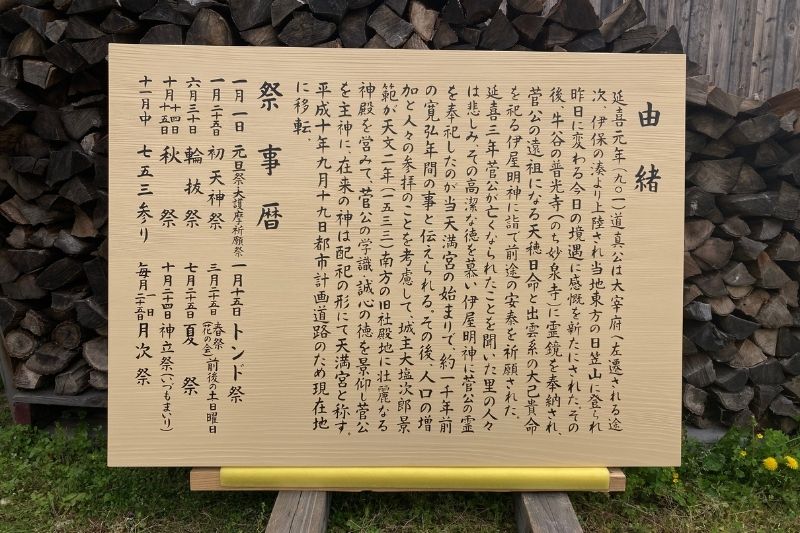 由緒
延喜元年(九〇一)道真公は大宰府へ左遷される途
次、伊保の湊より上陸され当地東方の日笠山に登られ
昨日に変わる今日の境遇に感慨を新たにされた。その
後、牛谷の普光寺(のち妙泉寺)に霊鏡を奉納され、
菅公の遠祖になる天穂日命と出雲系の大己貴命
を祀る伊屋明神に詣で前途の安泰を祈願された。
延喜三年菅公が亡くなられたことを聞いた里の人々
は悲しみ、その高潔な徳を慕い伊屋明神に菅公の霊
を奉祀したのが当天満宮の始まりで、約一千年前
の寛弘年間の事と伝えられる。その後、人口の増
加と人々の参拝のことを考慮して、城主大塩次郎景
範が天文二年(一五三三)南方の旧社殿地に壮麗なる
神殿を営みて、菅公の学識・誠心の徳を景仰し菅公
を主神に、在来の神は配祀の形にて天満宮と称す。
平成十年九月十九日都市計画道路のため現在地
に移転。
祭事暦
一月一日 元旦祭・大護摩祈願祭
一月二十五日 初天神祭
六月三十日 輪抜祭
十月十四日十五日 秋祭
十一月中 七五三参り
一月十五日 トンド祭
三月二十五日 春祭(花の会)前後の土日曜日
七月二十五日 夏祭
十月二十四日 神立祭(いづもまいり)
毎月一日二十五日 月次祭